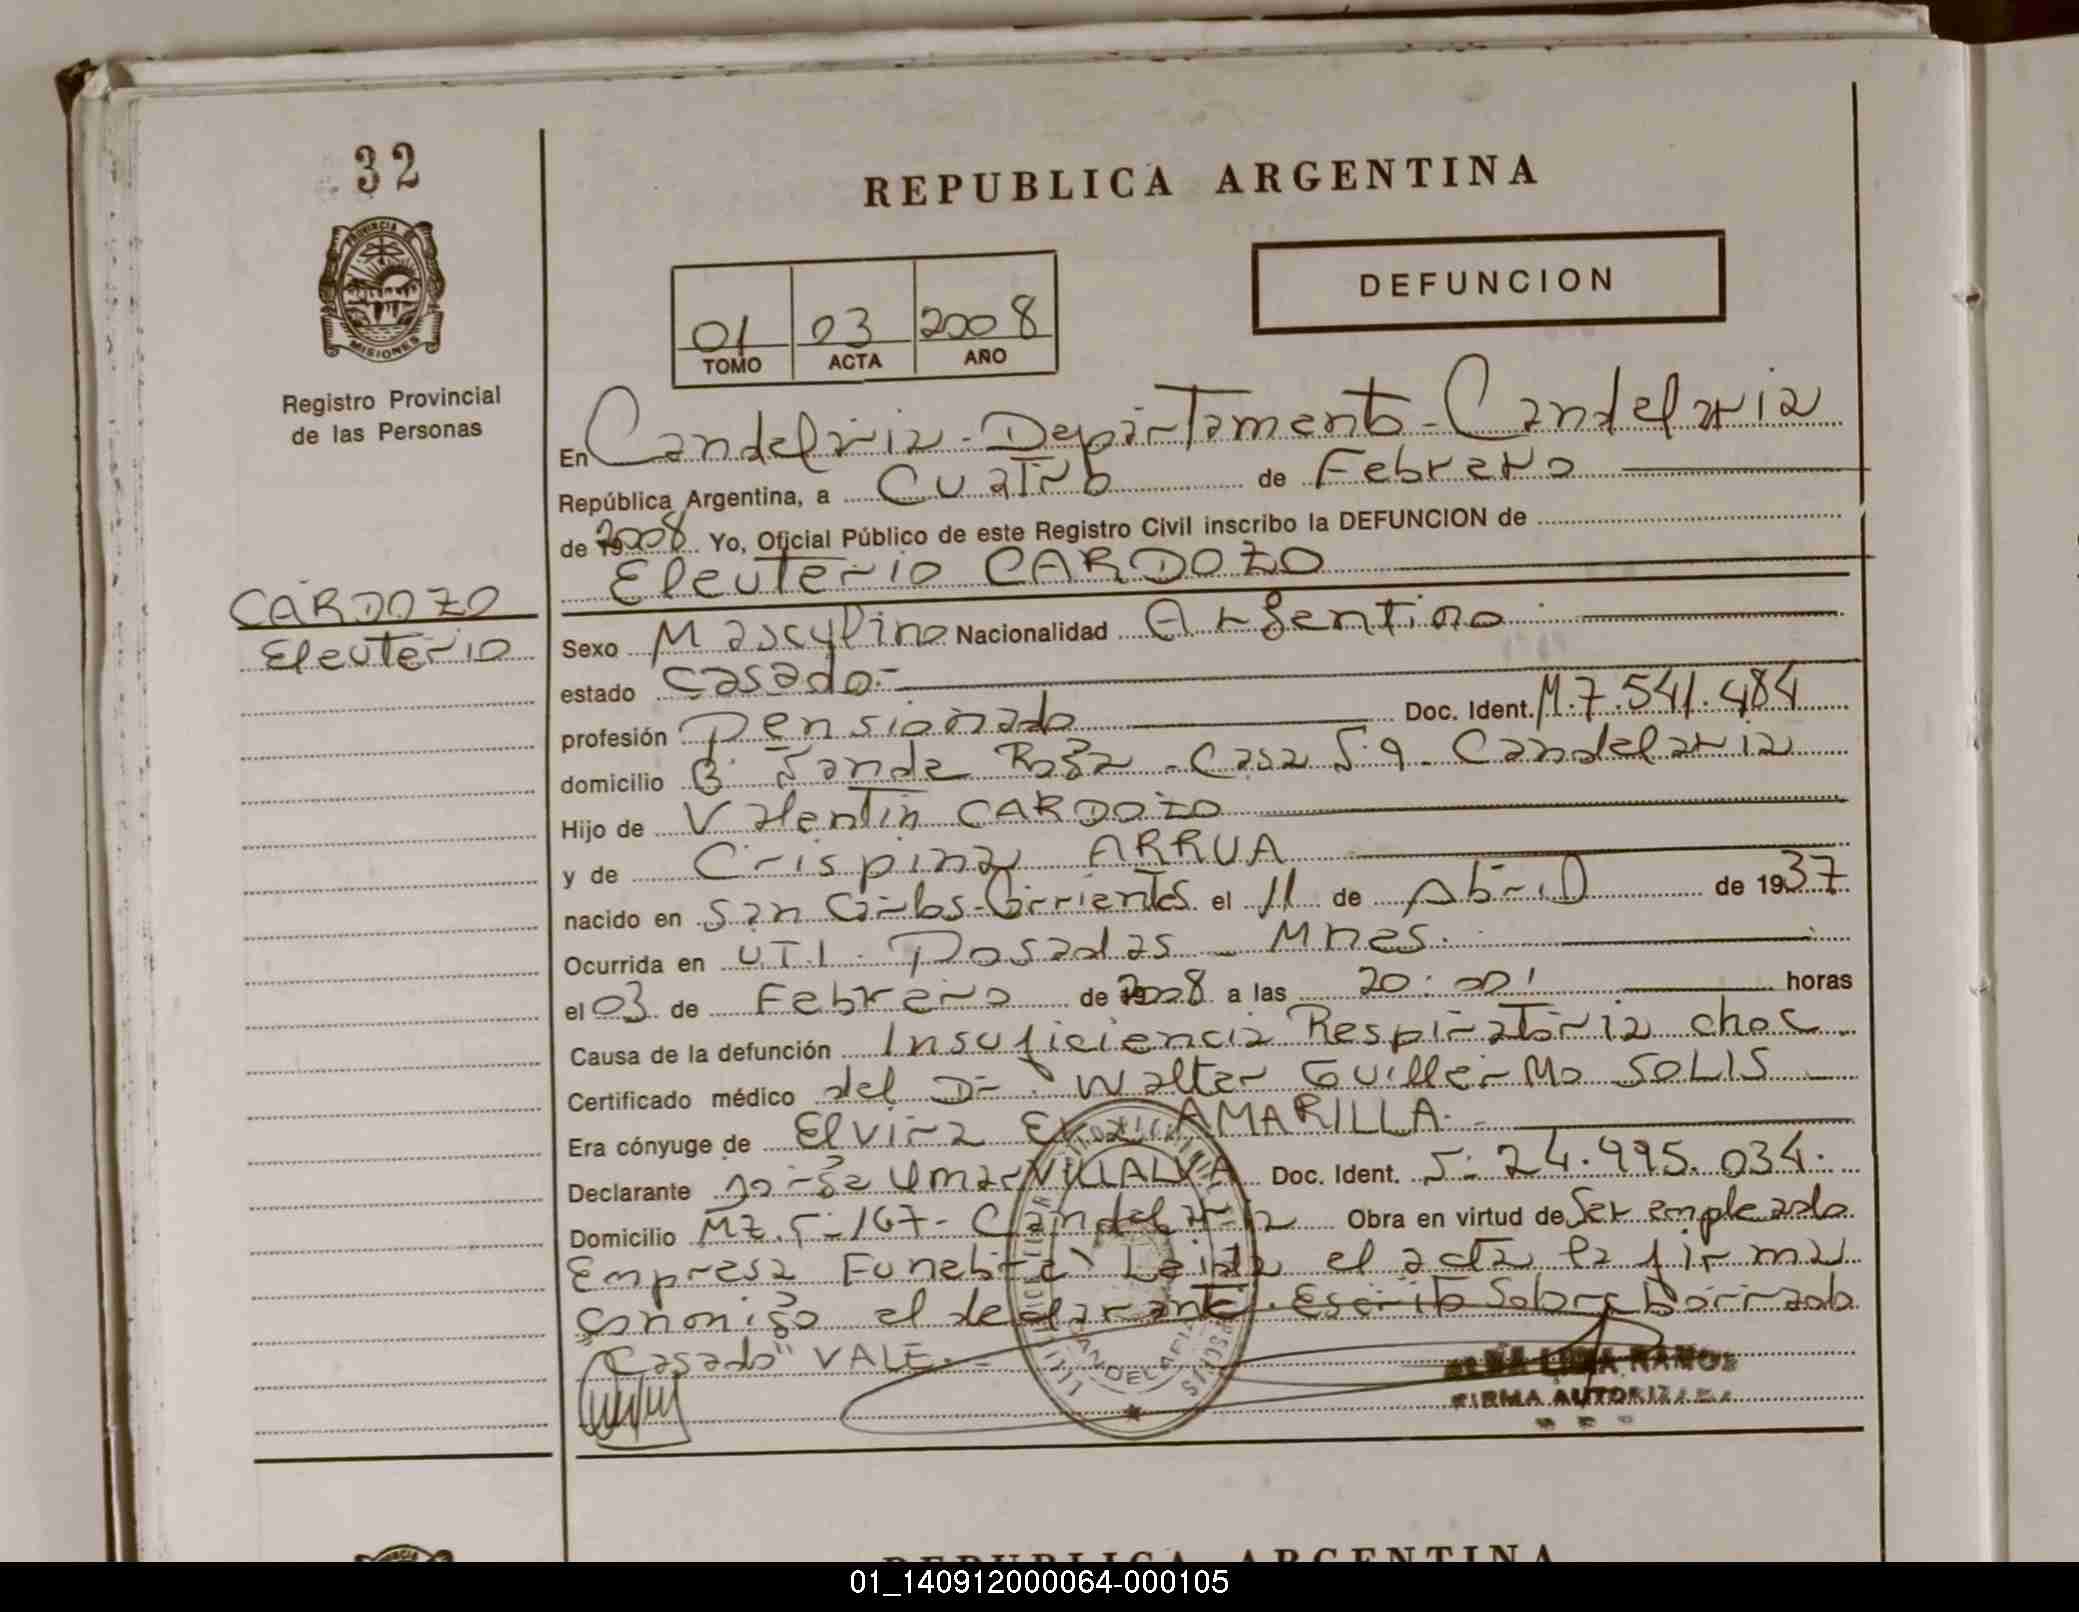 32
REPUBLICA ARGENTINA
PROVINCIA DE
MISIONES
DEFUNCION
01 03 2008
TOMO ACTA AÑO
Registro Provincial
de las Personas
En Candelaria - Departamento - Candelaria
República Argentina, a Cuatro de Febrero
de 2008 Yo, Oficial Público de este Registro Civil inscribo la DEFUNCION de
Eleuterio CARDOZO
CARDOZO
Eleuterio
Sexo Masculino Nacionalidad Argentino
estado casado.-
profesión Pensionado Doc. Ident. M.7.541.484
domicilio B° Casa Candelaria
Hijo de Valentin CARDOZO
y de Crispina ARRUA
nacido en San Carlos - Corrientes el 11 de Abril de 1937
Ocurrida en U.T.I. Posadas - Mnes.
el 03 de Febrero de 2008 a las 20:00' horas
Causa de la defunción Insuficiencia Respiratoria choc
Certificado médico del Dr. Walter Guillermo SOLIS
Era cónyuge de Elvira AMARILLA.
Declarante VILLALVA Doc. Ident. 24.995.034.
Domicilio Mz. 167 - Candelaria Obra en virtud de Ser empleado
Empresa Funebre Leida el acta la firma
conmigo el declarante. Escrito Sobre Borrado
"Casado" VALE.-
CANDELARIA
RAMOS
FIRMA AUTORIZADA
REPUBLICA ARGENTINA
01_140912000064-000105